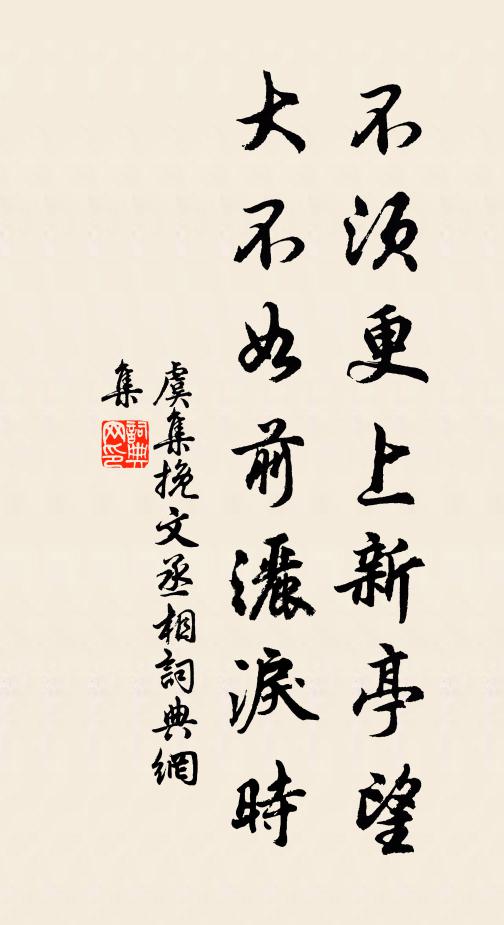 不須更上新亭望
大不如前灑淚時
虞集挽文丞相詞典網
集
詞典
网印